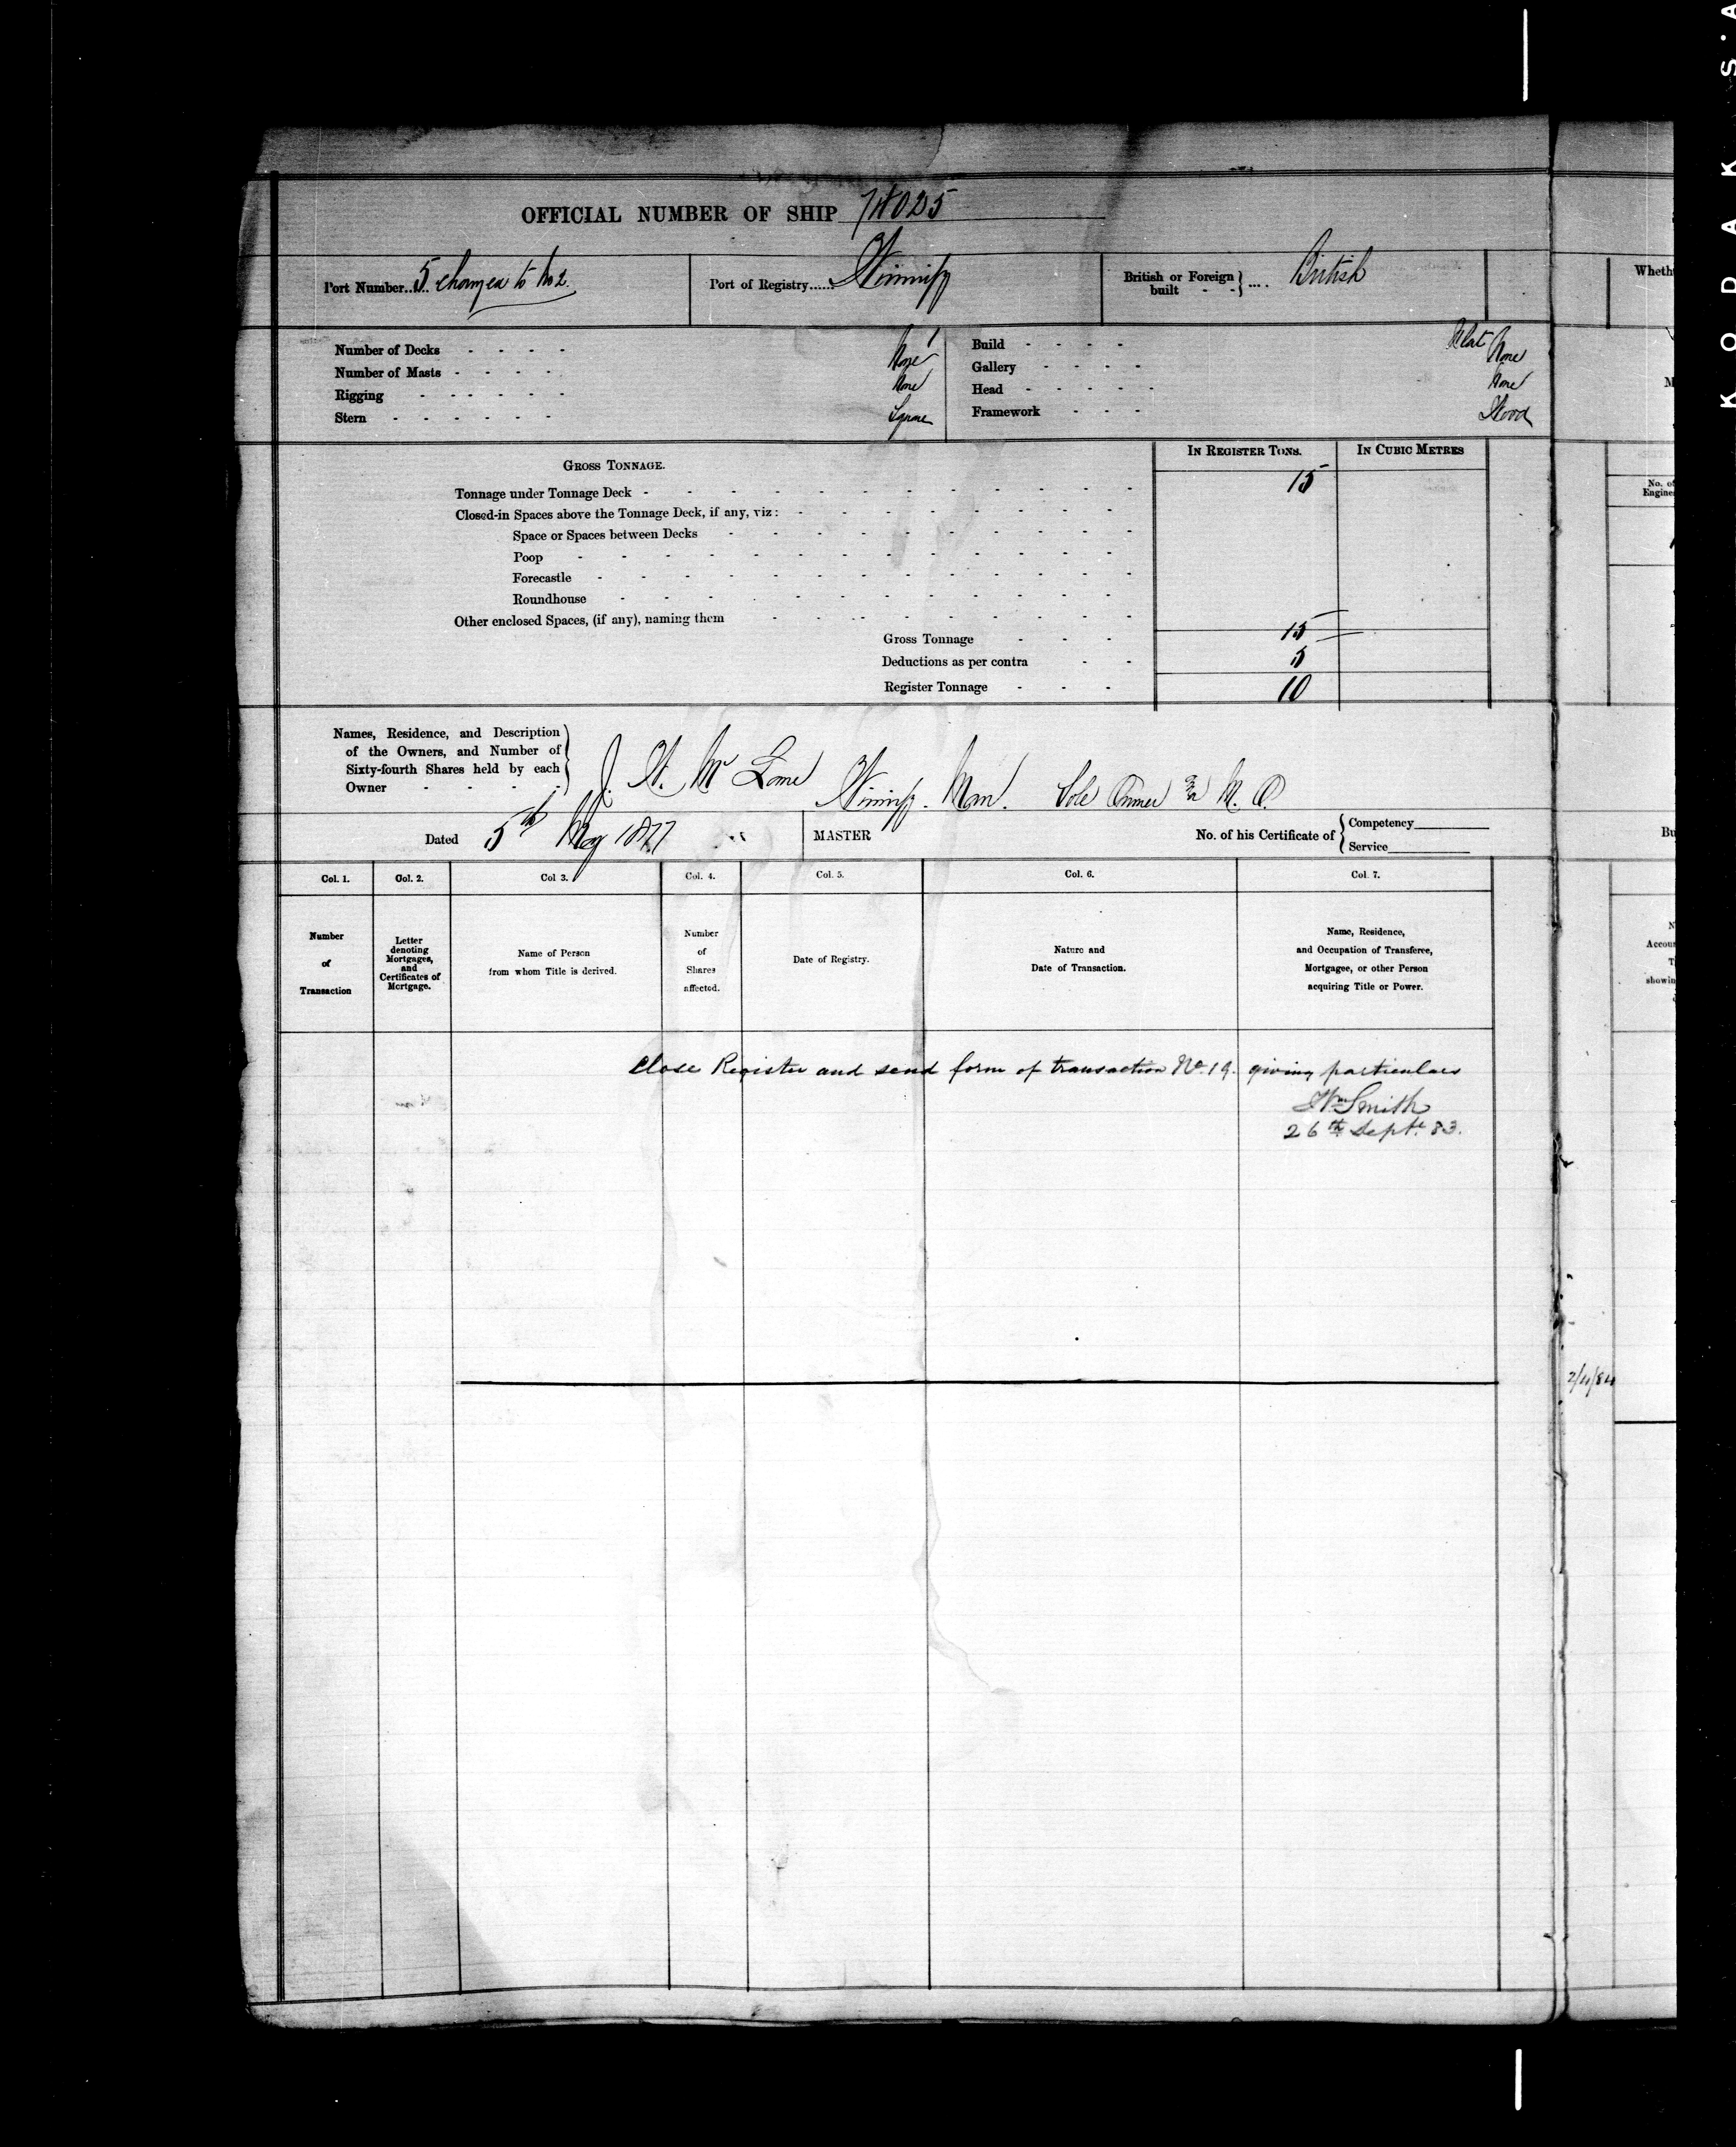 OFFICIAL NUMBER OF SHIP 74025
Port Number..... 5 changed to No 2.
Port of Registry...... Winnipg
British or Foreign built - - } .... British
Number of Decks - - - - 1
Number of Masts - - - - None
Rigging - - - - - - None
Stern - - - - - - Square
Build - - - - Flat
Gallery - - - - - None
Head - - - - - - None
Framework - - - Wood
GROSS TONNAGE.
IN REGISTER TONS.
IN CUBIC METRES
Tonnage under Tonnage Deck - 15
Closed-in Spaces above the Tonnage Deck, if any, viz:
Space or Spaces between Decks
Poop
Forecastle
Roundhouse
Other enclosed Spaces, (if any), naming them
Gross Tonnage - - - 15
Deductions as per contra - - 5
Register Tonnage - - - 10
Names, Residence, and Description
of the Owners, and Number of
Sixty-fourth Shares held by each
Owner - - - -
J. W. Mc Lane Winnipg. Man. Sole Owner & M. O.
Dated 5th May 1877
MASTER
No. of his Certificate of { Competency
Service
Col. 1.
Col. 2.
Col 3.
Col. 4.
Col. 5.
Col. 6.
Col. 7.
Number
of
Transaction
Letter
denoting
Mortgages,
and
Certificates of
Mortgage.
Name of Person
from whom Title is derived.
Number
of
Shares
affected.
Date of Registry.
Nature and
Date of Transaction.
Name, Residence,
and Occupation of Transferee,
Mortgagee, or other Person
acquiring Title or Power.
Close Register and send form of transaction No. 19. giving particulars
Wm Smith
26th Sept. 83.
Wheth
No. of
Engine
Bu
Accou
showin
2/4/84
KODAK S.A